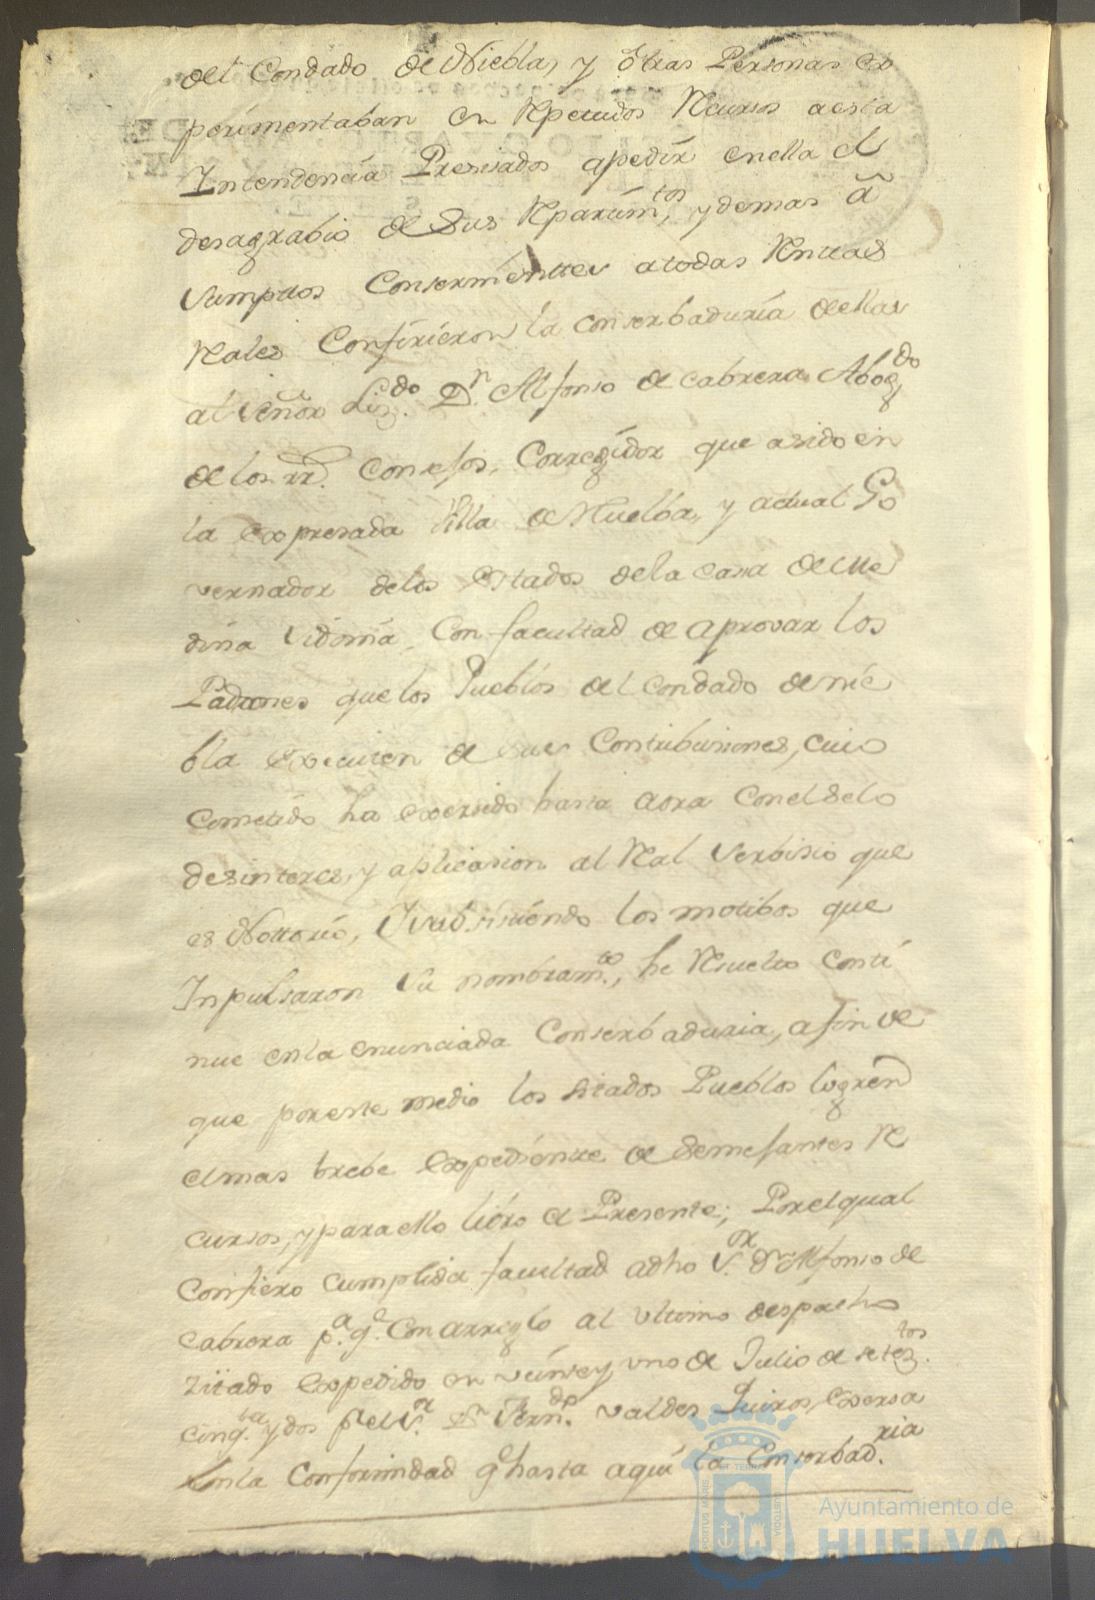 del Condado de Niebla, y otras Personas ex
perimentaban en Repetidos Recursos a esta
Intendencia Presisados apedir en ella el
desagrabio de sus Repartim.tos, y demas a
sumptos Conserníentes a todas Rentas
Rales Confirieron la conserbaduría de ellas
al Señor Liz.do D.n Alfonso de Cabrera Abog.do
de los rr.s Consejos, Corregidor que asido en
la expresada Villa de Huelba, y actual Go
vernador delos Estados dela casa de Me
dina Sidonia, Con facultad de aprovar los
Padrones que los Pueblos del Condado de Nie
bla executen de sus Contribusiones, cuio
Cometido ha exersido hasta aora Con el selo
desinteres, y aplicasion al Real Serbisio que
es Nottorio, Y subsistiendo los motibos que
Inpulsaron su nombram.to, he Resuelto Conti
nue en la enunciada Conserbaduria, a fin de
que por este medio los sitados Pueblos logren
el mas brebe Expediente de Semejantes Re
cursos, y para ello libro el Presente; Por el qual
Confiero Cumplida facultad adho S.or D.n Alfonso de
Cabrera p.a q.e Con arreglo al ultimo despacho
zitado Expedido en veinte y uno de Julio de setez.tos
cinq.ta y dos p.r el S.r D.n Fern.do Valdes Quiros, exersa
en la Conformidad q.e hasta aqui la Conserbad.ria
PORTUS MARIS
ET TERRAE
CUSTODIA
Ayuntamiento de
HUELVA